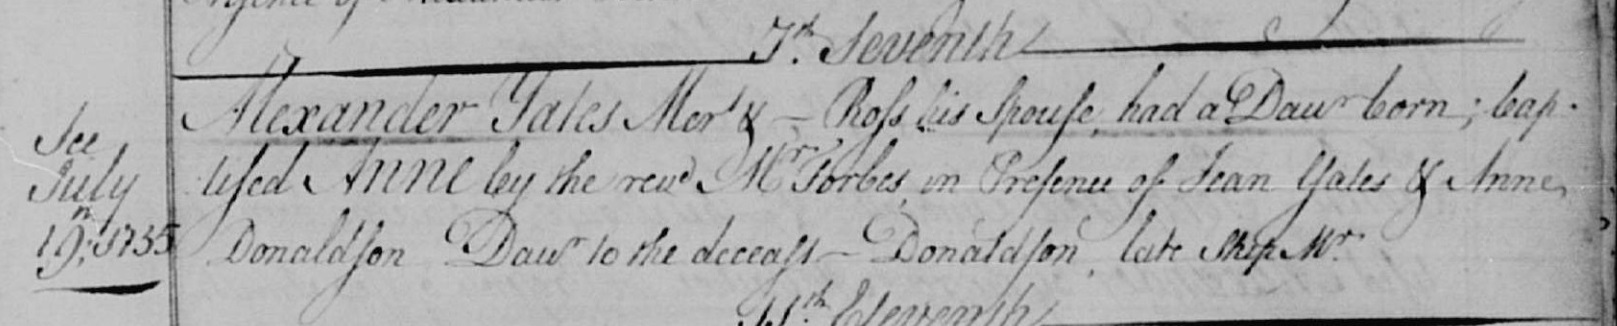 7th. Seventh
Alexander Yates Mert & — Ross his Spouse, had a Dawr born; bap-
tised Anne by the revd Mr Forbes, in Presence of Jean Yates & Anne
Donaldson Dawr to the deceast — Donaldson, late Ship Mr.
See
July
19n: 1735
11th. Eleventh